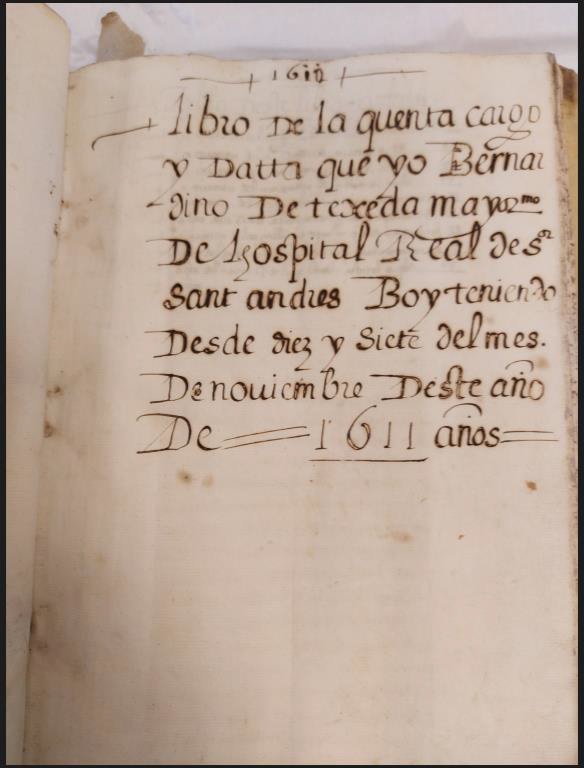 libro De la quenta cargo
y Datta que yo Bernar
dino De texeda mayormo
De lhospital Real de sor
Sant andres Boy teniendo
Desde diez y Siete del mes.
De nouiembre Deste año
De 1611 años